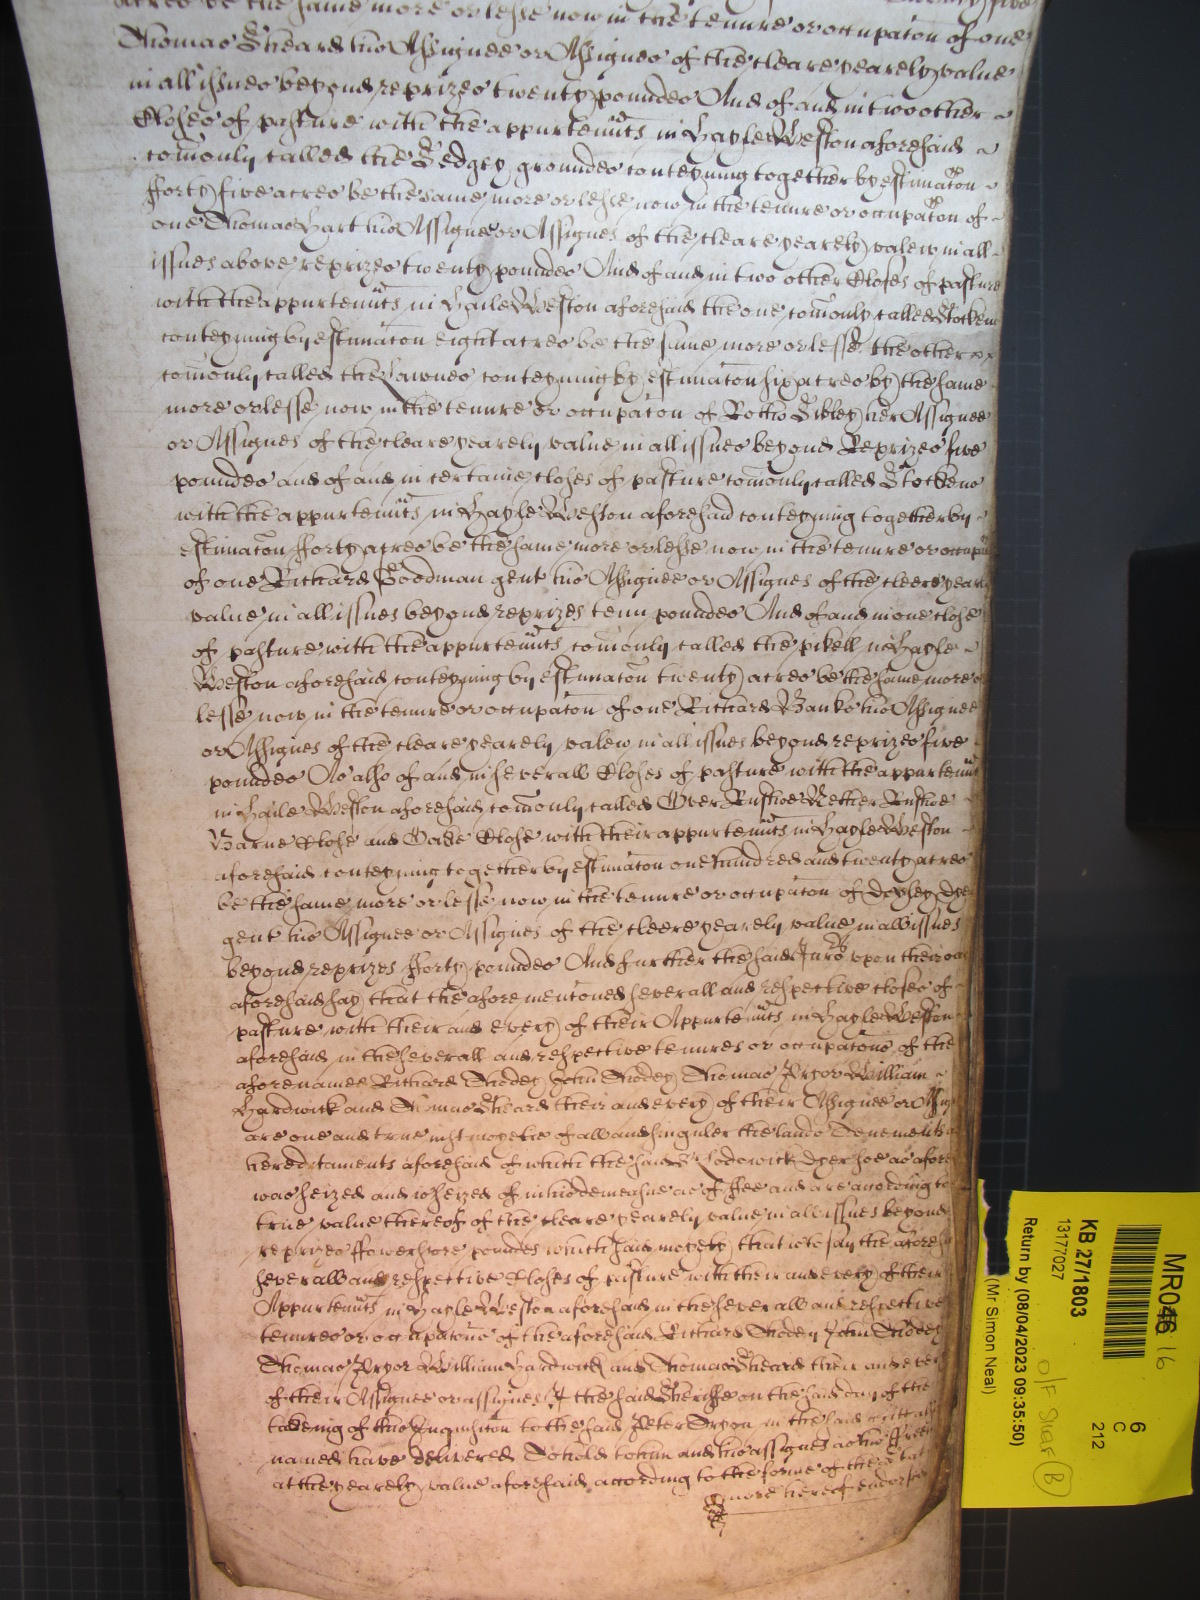 acres be the same more or lesse now in the tenure or occupac̃on of one
Thomas Sheard his Assignee or Assignes of the cleare yearely value
in all issues beyond reprizes twenty poundes And of and in two other
Closes of pasture with the appurten̄ts in Hayle Weston aforesaid
com̄only called the Sedgey groundes conteyning together by estimac̃on
fforty five acres be the same more or lesse now in the tenure or occupac̃on of
one Thomas Hart his Assignee or Assignes of the cleare yearely valew in all
issues above reprizes twenty poundes And of and in two other Closes of pasture
with the appurten̄ts in Haile Weston aforesaid the one com̄only called Stocken
conteyning by estimac̃on eight acres be the same more or lesse the other
com̄only called the Lawnes conteyning by estimac̃on six acres by the same
more or lesse now in the tenure or occupac̃on of Sibley her Assignee
or Assignes of the cleare yearely value in all issues beyond Reprizes five
poundes and of and in certaine closes of pasture com̄only called Stockens
with the appurten̄ts in Hayle Weston aforesaid conteyning together by
estimac̃on fforty acres be the same more or lesse now in the tenure or
of one Richard Goodman gent his Assignee or Assignes of the cleere
value in all issues beyond reprizes tenn poundes And of and in one close
of pasture with the appurten̄ts com̄only called the pikell in Hayle
Weston aforesaid conteyning by estimac̃on twenty acres be the same more or
lesse now in the tenure or occupac̃on of one Richard Banks his Assignee
or Assignes of the cleare yearely valew in all issues beyond reprizes five
poundes As also of and in severall Closes of pasture with the appurten̄ts
in Haile Weston aforesaid com̄only called Over Nether
Barne Close and Close with their appurten̄ts in Hayle Weston
aforesaid conteyning together by estimac̃on one hundred and twenty acres
be the same more or lesse now in the tenure or occupac̃on of Doyley Dyer
gent his Assignee or Assignes of the cleere yearely value in all issues
beyond reprizes fforty poundes And further the said Juro͛s upon their
aforesaid say that the afore menc̃oned severall and respective closes of
pasture with their and every of their Appurten̄ts in Hayle Weston
aforesaid in the severall and respective tenures or occupac̃ons of the
aforenamed Richard John Thomas Pryor William
Hardwick and Thomas Sheard their and every of their Assignee or
are one and true just moyetie of all and singuler the lands Tenements
hereditaments aforesaid of which the said Lodowick Dyer soe as
was seized and is seized of in his demeasne as of ffee and are according to
true value thereof of the cleare yearely value in all issues beyond
reprizes ffowerscore poundes which said moyety that is to say the
severall and respective Closes of pasture with their and every of their
Appurten̄ts in Hayle Weston aforesaid in the severall and respective
tenures or occupac̃ons of the aforesaid Richard John
Thomas Pryor William Hardwick and Thomas Sheard their and every
of their Assignee or assignes I the said Sheriffe on the said day of the
takeing of this Inquisic̃on to the said Peter in the said
named have delivered To hold to him and his assignes as his
at the yearely value aforesaid according to the forme of the
more hereof
MR046
16
6
C
212
KB 27/1803
13177027
Return by (08/04/2023 09:35:50)
(Mr Simon Neal)
O/F
B